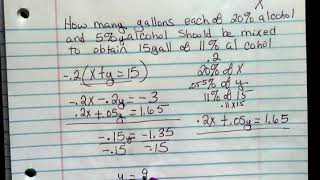 x
How many gallons each of 20% alcohol
and 5% alcohol should be mixed
to obtain 15 gall of 11% alcohol
.2
-.2(x+y=15)
20% of x
.05 5% of y
-.2x-.2y=-3
11% of 15
.11x15
.2x+.05y=1.65
.2x+.05y=1.65
-.15y=-1.35
-.15 -.15
y = 9